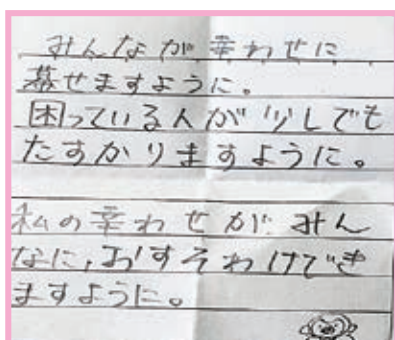 みんなが幸わせに
暮せますように。
困っている人が少しでも
たすかりますように。
私の幸わせがみん
なに,おすそわけでき
ますように。